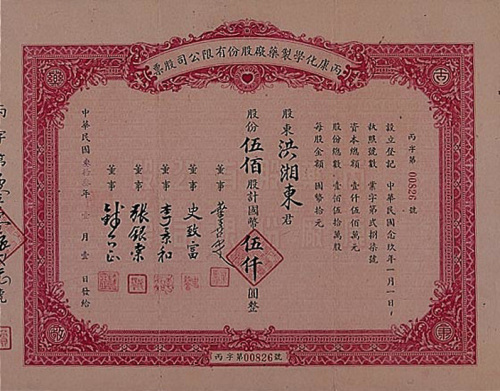 丙康化學製藥廠股份有限公司股票
丙字第00826號
設立登記 中華民國念玖年一月一日
執照號數 業字第貳捌柒號
資本總額 壹仟伍佰萬元
股份總數 壹佰伍拾萬股
每股金額 國幣拾元
股東洪湘東君
股份伍佰股計國幣伍仟圓整
董事
董事 史致富
董事 李景和
董事 張銀棠
董事
中華民國 年 月壹日發給
丙字第00826號